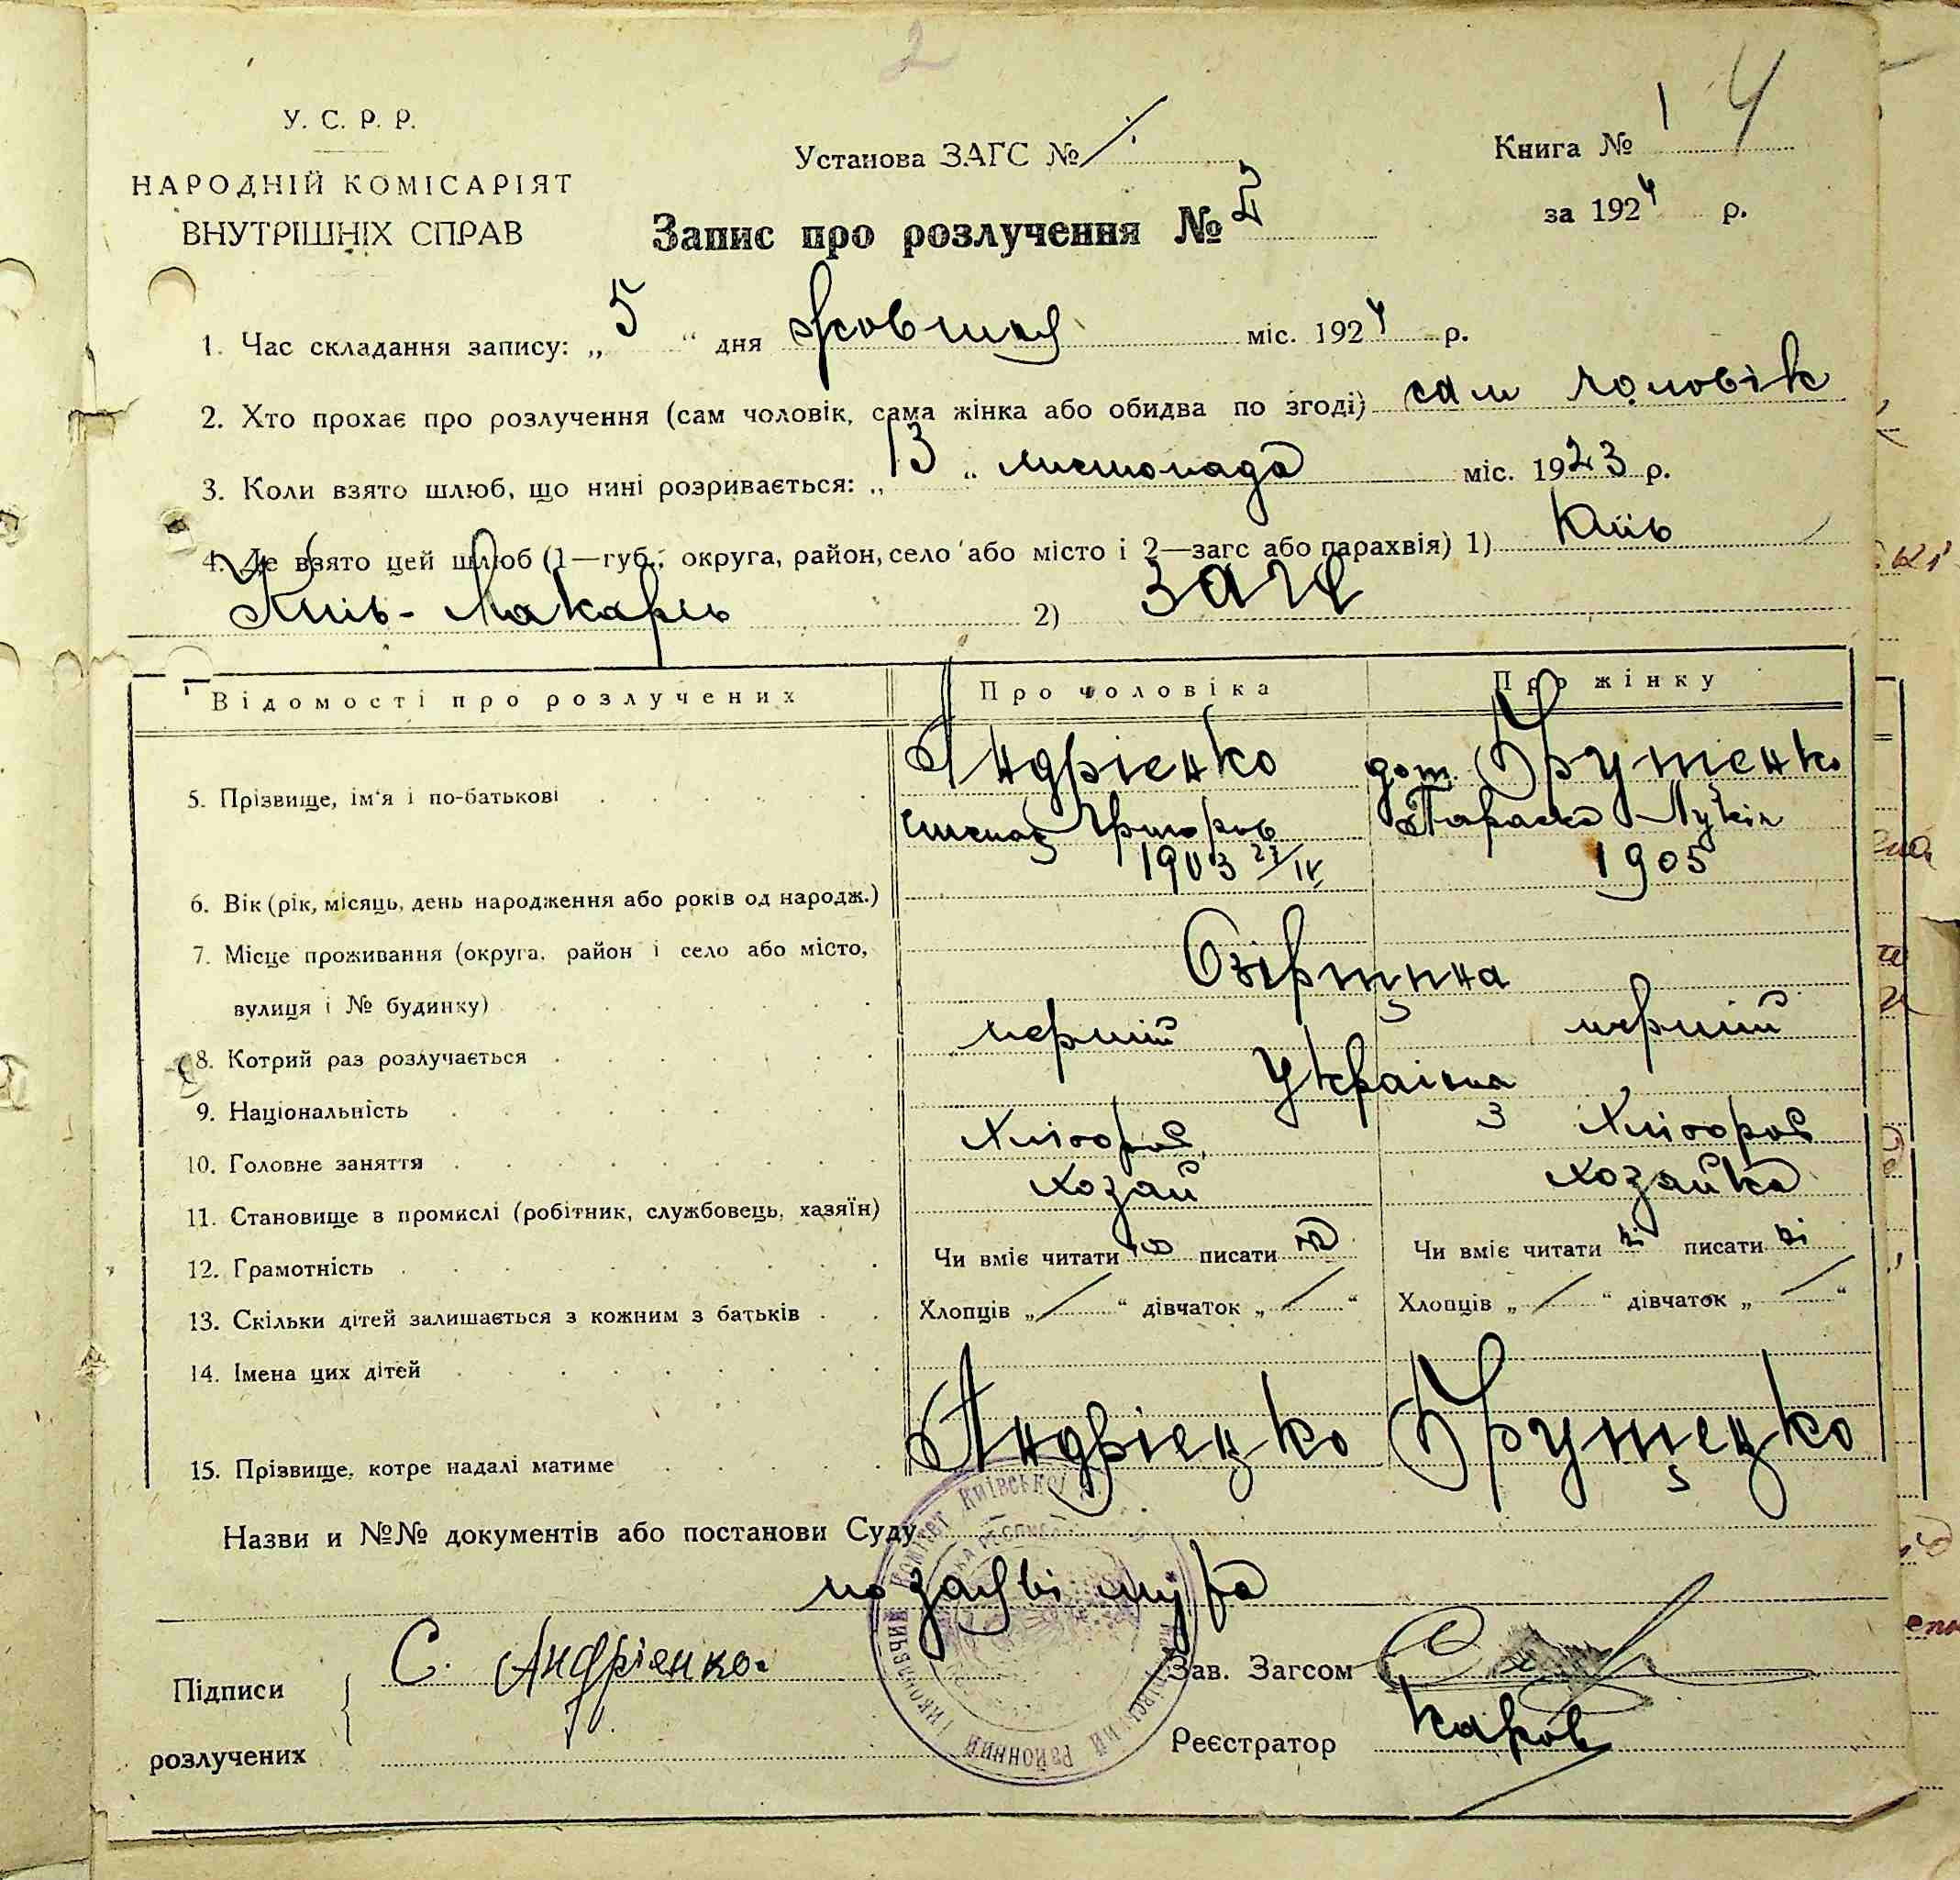 2
У. С. Р. Р.
НАРОДНІЙ КОМІСАРІЯТ
ВНУТРІШНІХ СПРАВ
Установа ЗАГС №
Книга № 1 4
за 1924 р.
Запис про розлучення № 2
1. Час складання запису: „5“ дня жовтня міс. 1924 р.
2. Хто прохає про розлучення (сам чоловік, сама жінка або обидва по згоді) сам чоловік
3. Коли взято шлюб, що нині розривається: „13“ листопада міс. 1923 р.
4. Де взято цей шлюб (1—губ., округа, район, село або місто і 2—загс або парахвія) 1) Київ
Київ - Макарів 2) загс
Відомості про розлучених Про чоловіка Про жінку
5. Прізвище, ім'я і по-батькові Андрієнко дош. Грушенко
Степан Григоров Параска Лук'ян
6. Вік (рік, місяць, день народження або років од народж.) 1903 27/IV 1905
7. Місце проживання (округа, район і село або місто,
вулиця і № будинку)
8. Котрий раз розлучається перший перший
9. Національність Україна
10. Головне заняття Хлібороб Хлібороб
11. Становище в промислі (робітник, службовець, хазяїн) хозяй хозяйка
12. Грамотність Чи вміє читати писати Чи вміє читати ні писати ні
13. Скільки дітей залишається з кожним з батьків Хлопців „ / “ дівчаток „ / “ Хлопців „ / “ дівчаток „ / “
14. Імена цих дітей
15. Прізвище, котре надалі матиме Андрієнко Грушенко
Назви и №№ документів або постанови Суду
по заяві
Підписи С. Андрієнко. Зав. Загсом
розлучених Реєстратор
РАЙОННИЙ ВИКОНАВЧИЙ КОМІТЕТ КИЇВСЬКОЇ